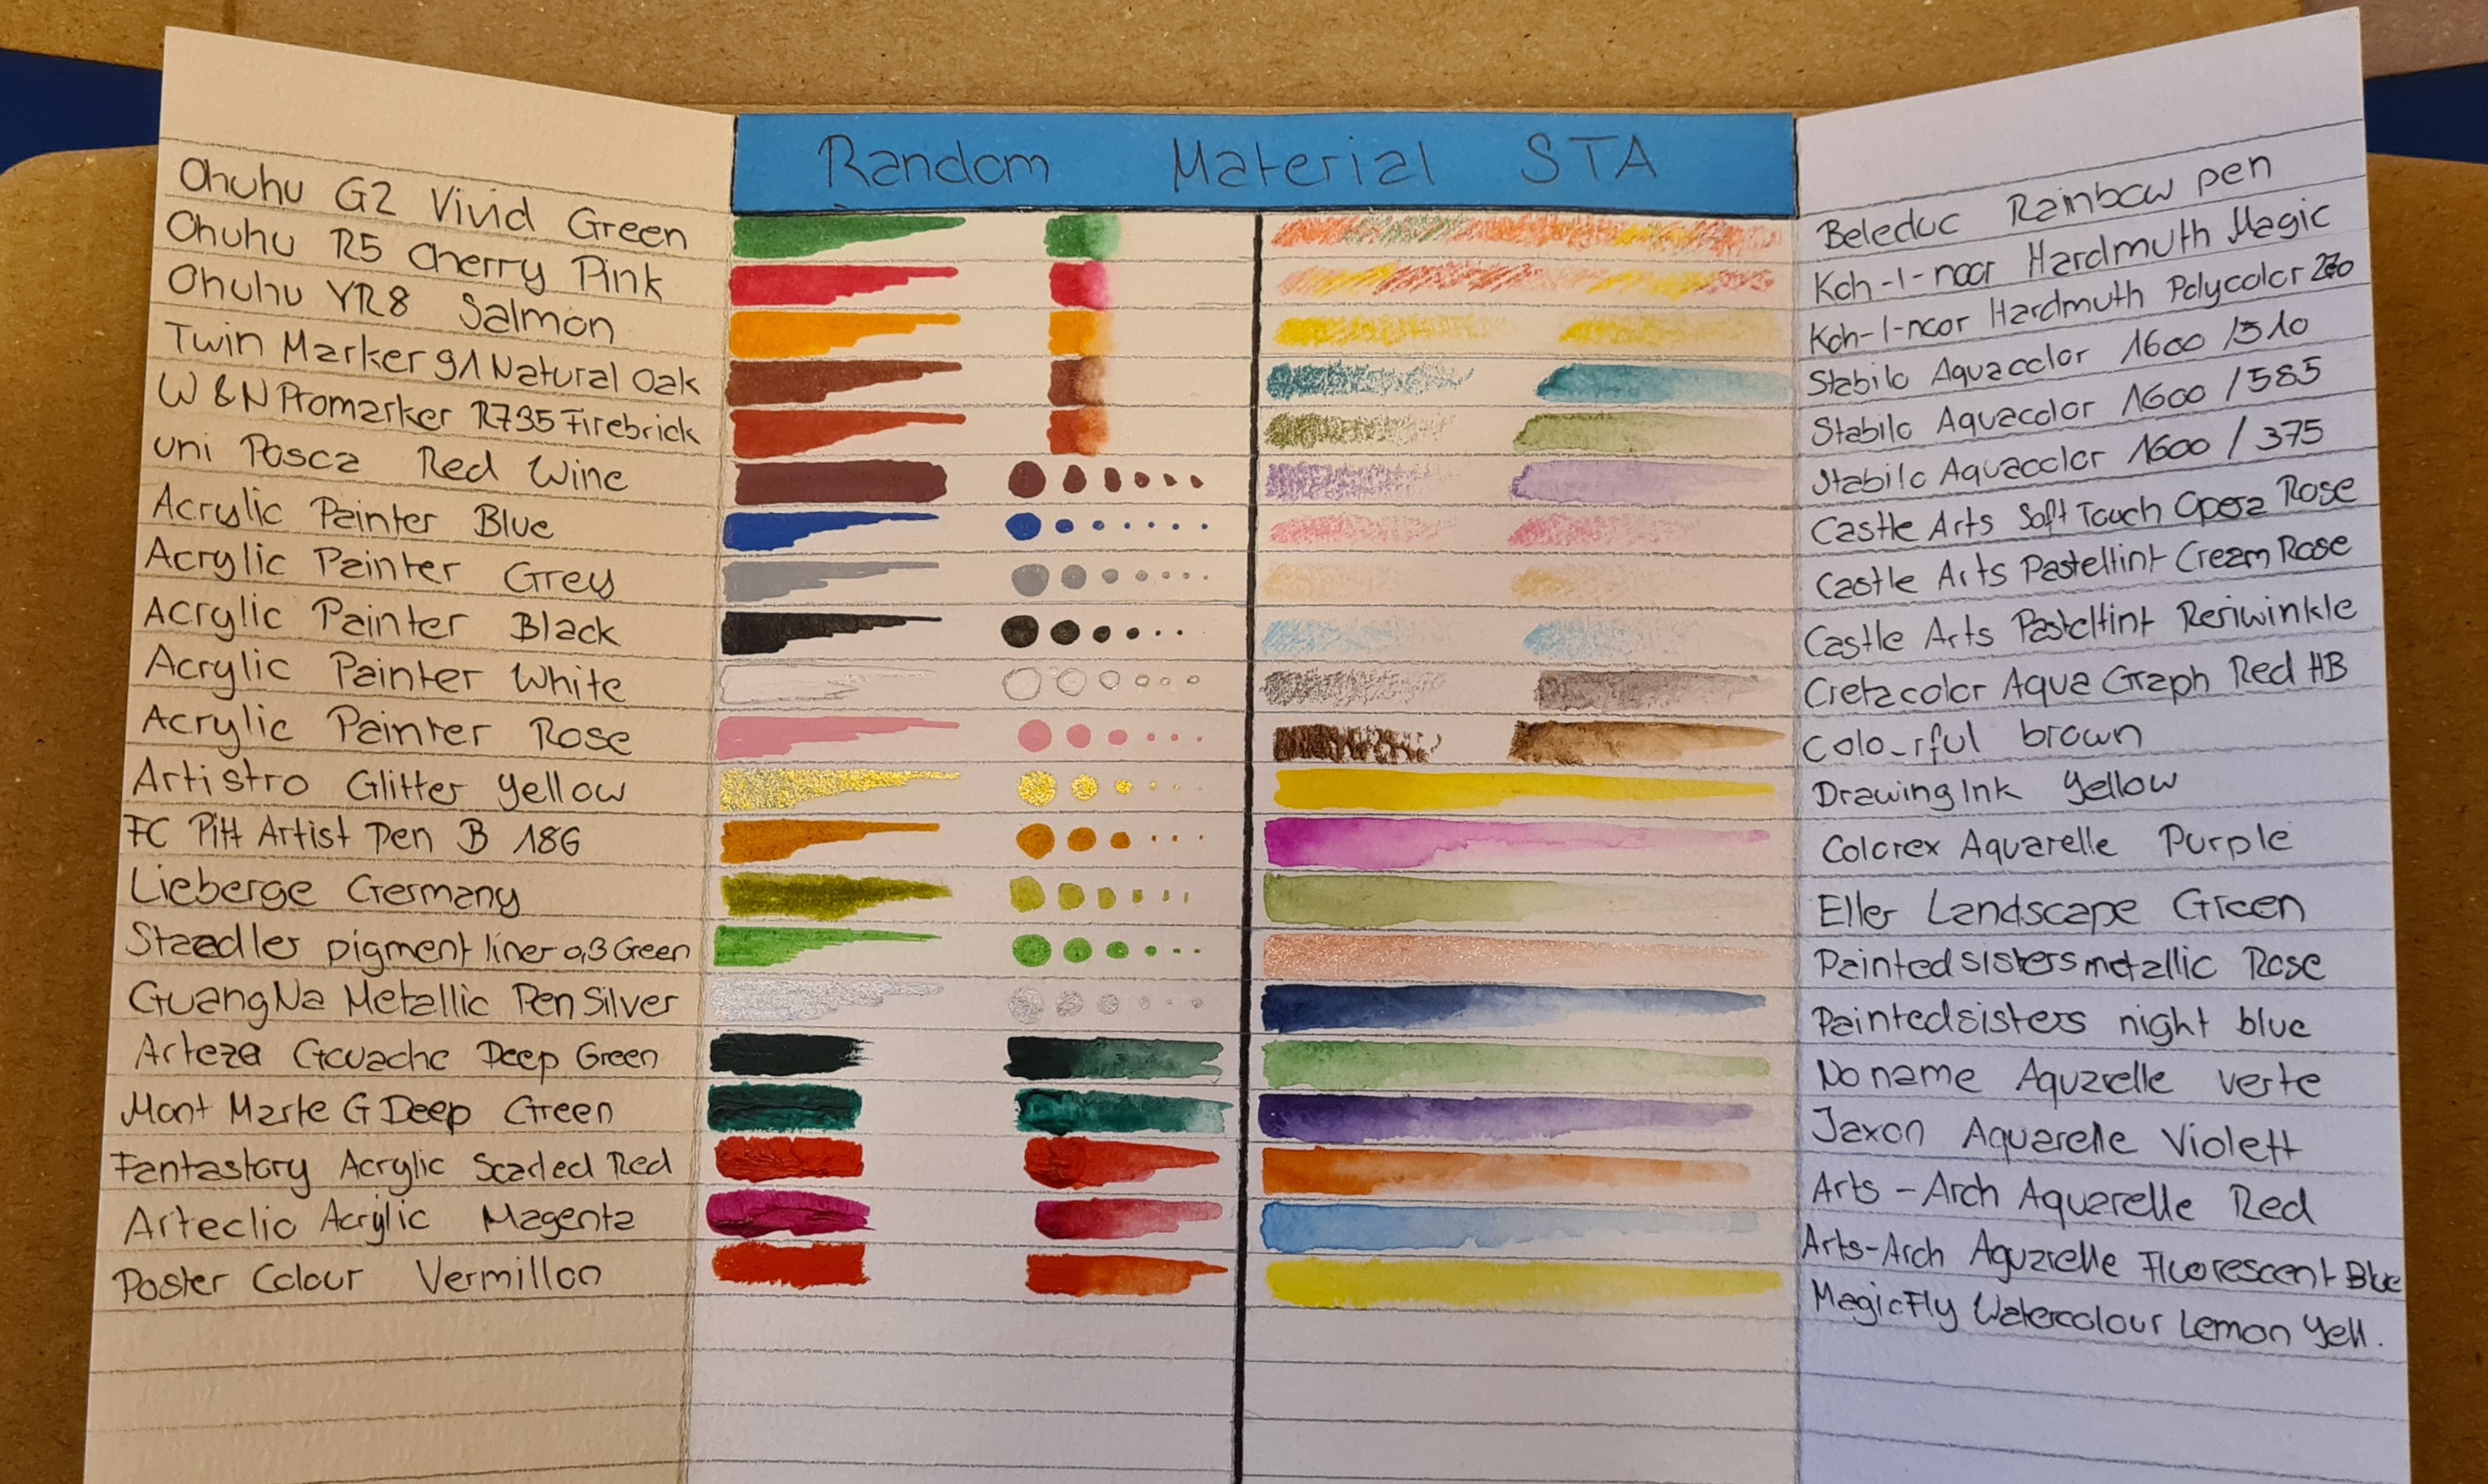 Random Material STA
Ohuhu G2 Vivid Green
Ohuhu R5 Cherry Pink
Ohuhu YR8 Salmon
Twin Marker 91 Natural Oak
W&N Promarker R735 Firebrick
uni Posca Red Wine
Acrylic Painter Blue
Acrylic Painter Grey
Acrylic Painter Black
Acrylic Painter White
Acrylic Painter Rose
Artistro Glitter yellow
FC Pitt Artist Pen B 186
Lieberge Germany
Staedler pigment liner 0,3 Green
GuangNa Metallic Pen Silver
Arteza Gouache Deep Green
Mont Marte G Deep Green
Fantastory Acrylic Scarled Red
Arteclio Acrylic Magenta
Poster Colour Vermillon
Beleduc Rainbow pen
Koh-I-noor Hardmuth Magic
Koh-I-noor Hardmuth Polycolor
Stabilo Aquacolor 1600 /510
Stabilo Aquacolor 1600 /585
Stabilo Aquacolor 1600 / 375
Castle Arts Soft Touch Opera Rose
Castle Arts Pasteltint Cream Rose
Castle Arts Pasteltint Periwinkle
Cretacolor Aqua Graph Red HB
Colo_rful brown
Drawing Ink yellow
Colorex Aquarelle Purple
Eller Landscape Green
Paintedsisters metallic Rose
Paintedsisters night blue
No name Aquarelle verte
Jaxon Aquarelle Violett
Arts - Arch Aquarelle Red
Arts-Arch Aquarelle Fluorescent Blue
MagicFly Watercolour Lemon Yell.